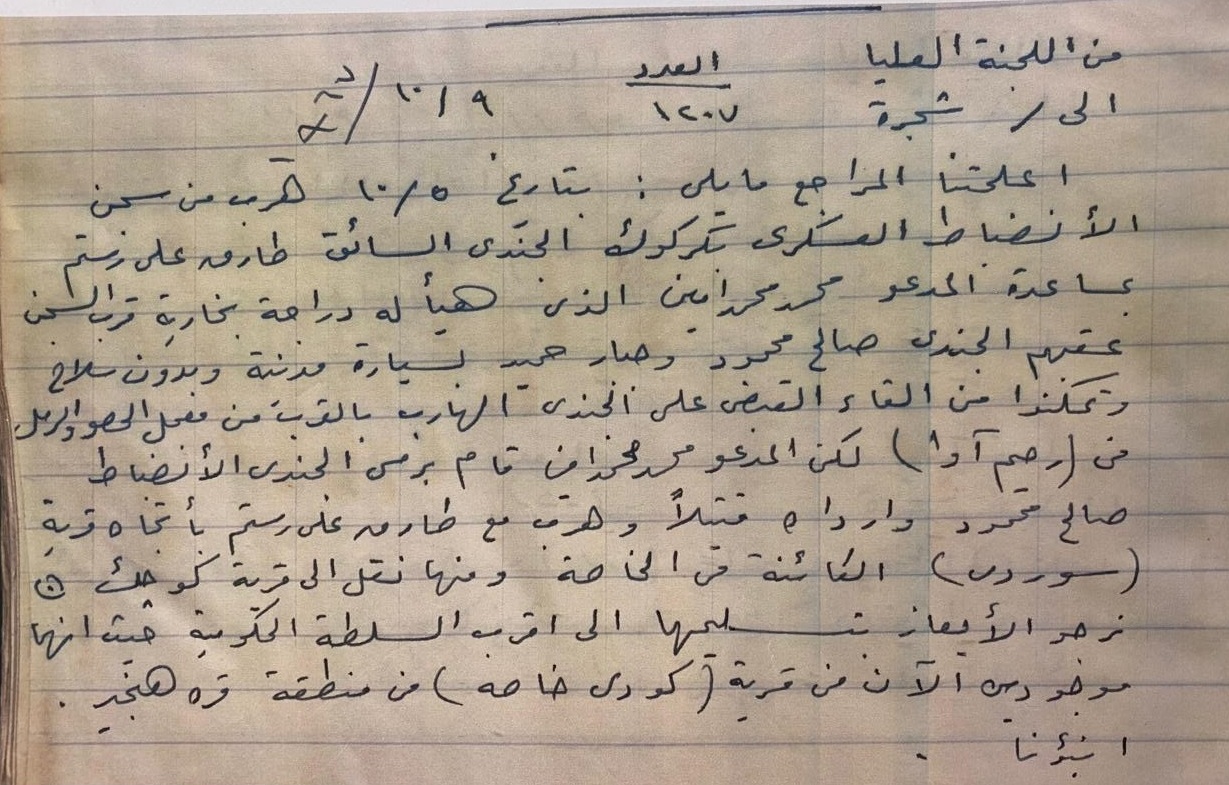 من اللجنة العليا العدد ١٠/٩
الى / شجرة ١٢٠٧
اعلمتنا المراجع مايلي : بتاريخ ١٠/٥ هرب من سجن
الأنضباط العسكري بكركوك الجندي السائق طارق علي رستم
بمساعدة المدعو محمد محمد امين الذي هيأ له دراجة بخارية قرب السجن
عقبهم الجندي صالح محمود وصار حميد بسيارة مدنية وبدون سلاح
وتمكنوا من القاء القبض على الجندي الهارب بالقرب من معمل الحصو والرمل
في (رحيم آوا) لكن المدعو محمد محمد امين قام برمي الجندي الأنضباط
صالح محمود وارداه قتيلاً وهرب مع طارق علي رستم بأتجاه قرية
(سوردى) الكائنة في الخاصة ومنها نقل الى قرية كوجك
نرجو الأيعاز بتسليمها الى اقرب السلطة الحكومية حيث انهما
موجودين الآن في قرية (كودى خاصه) من منطقة قره هنجير .
انبؤنا .